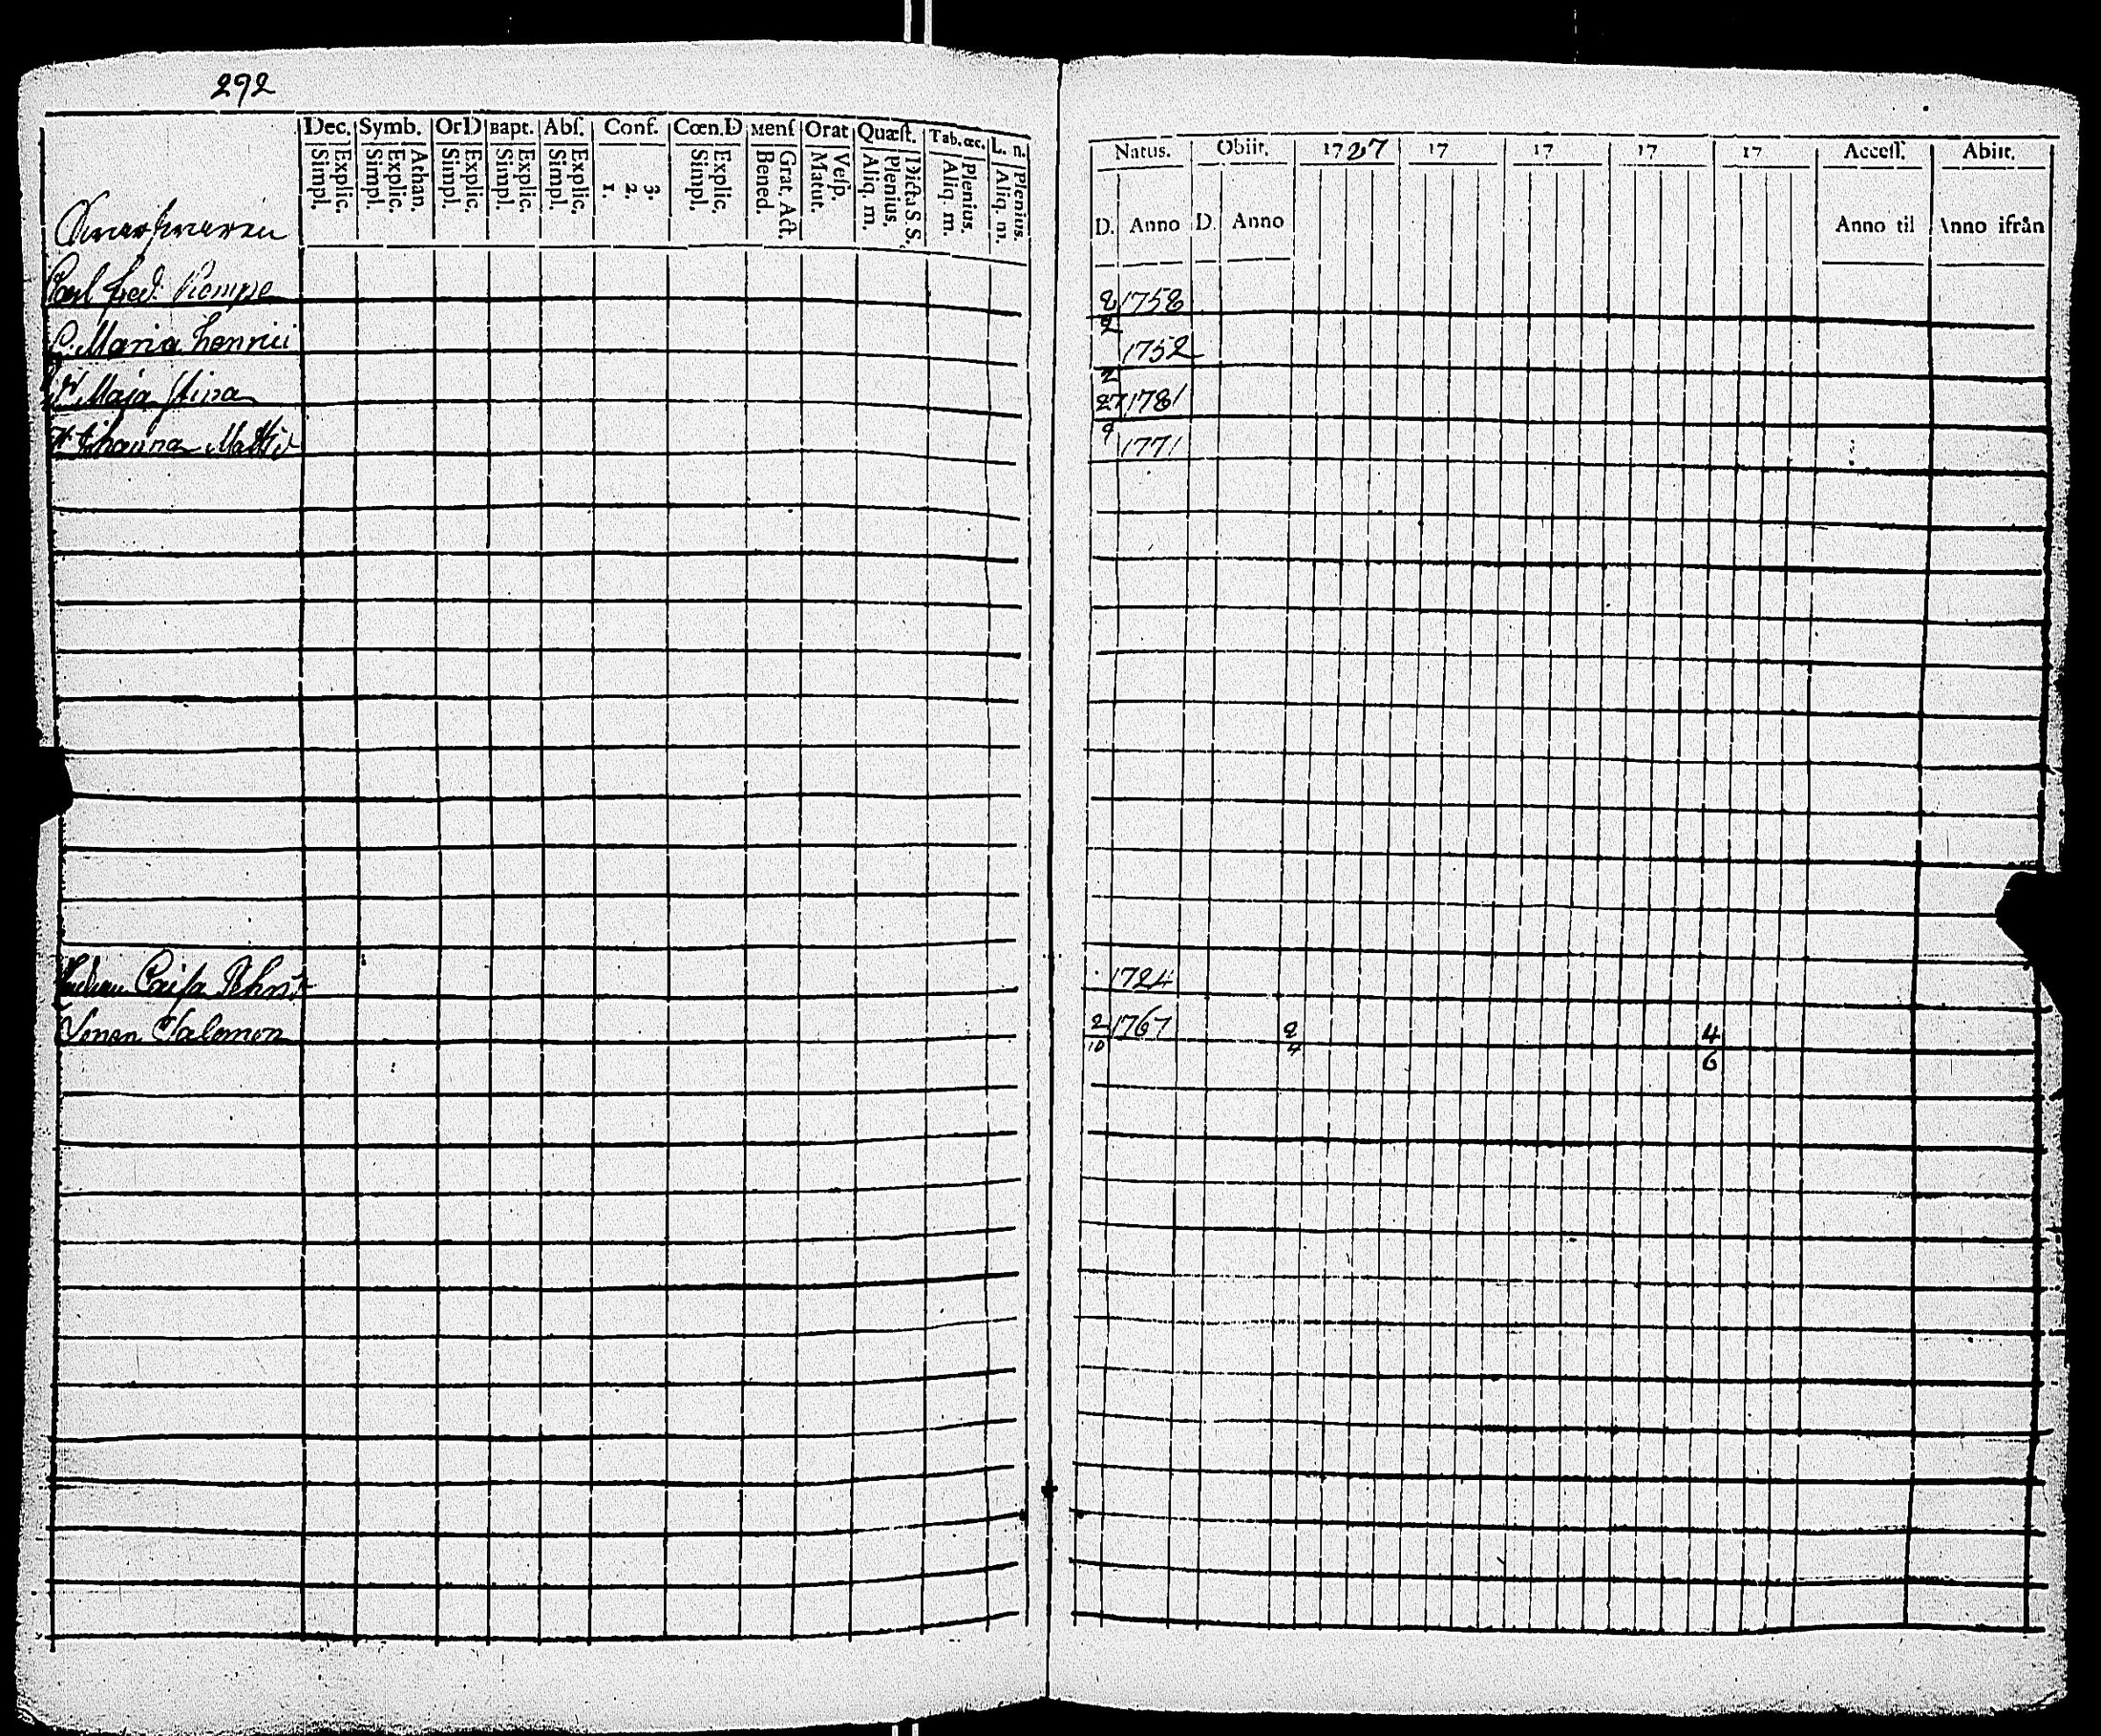 292
Dec. Symb. OrD Bapt. Abſ. Conf. Cœn.D Menſ Orat Quæſt. Tab. œc. L. n.
Simpl. Explic. Simpl. Explic. Athan. Simpl. Explic. Simpl. Explic. Simpl. Explic. 1. 2. 3. Simpl. Explic. Bened. Grat. Act. Matut. Veſp. Aliq. m. Plenius. Dicta S. S. Aliq. m. Plenius. Aliq. m. Plenius.
Carl Fred. Rempe
Maria Henrici
Maja Stina
Johanna
Caisa
Salomon
Natus. Obiit. 1787 17 17 17 17 Acceſſ. Abiit.
D. Anno D. Anno Anno til Anno ifrån
8 1758
2
1752
2
27 1781
9
1771
1724
2 1767 2 4
10 4 6